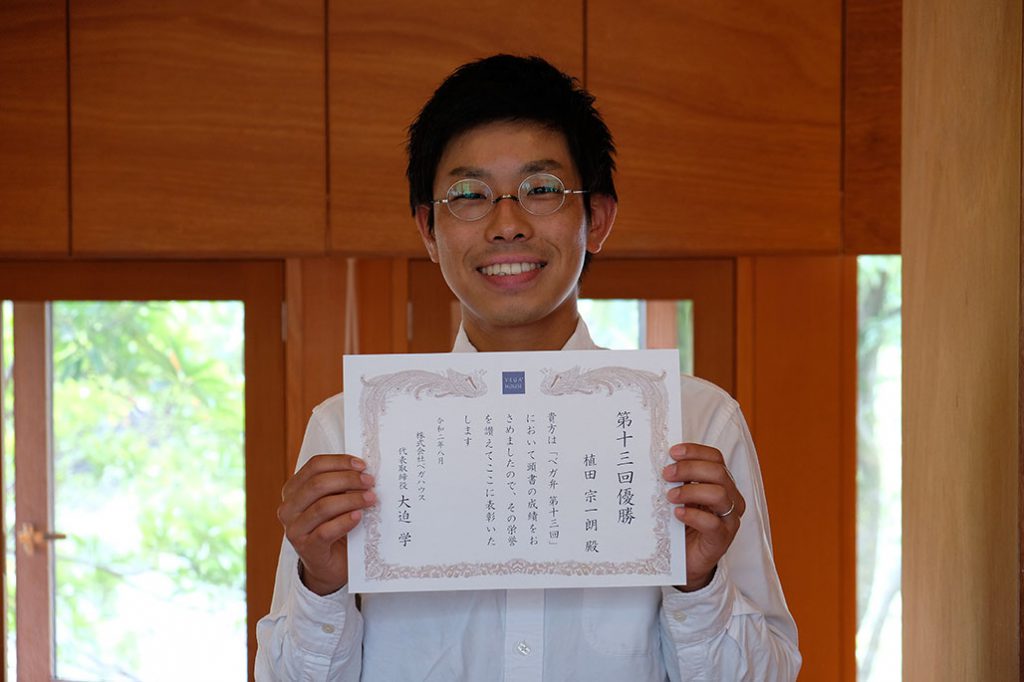 VEGA HOUSE
第十三回優勝
植田 宗一朗 殿
貴方は「ベガ弁 第十三回」
において頭書の成績をお
さめましたので、その栄誉
を讃えてここに表彰いた
します
令和二年八月
株式会社ベガハウス
代表取締役 大迫 学